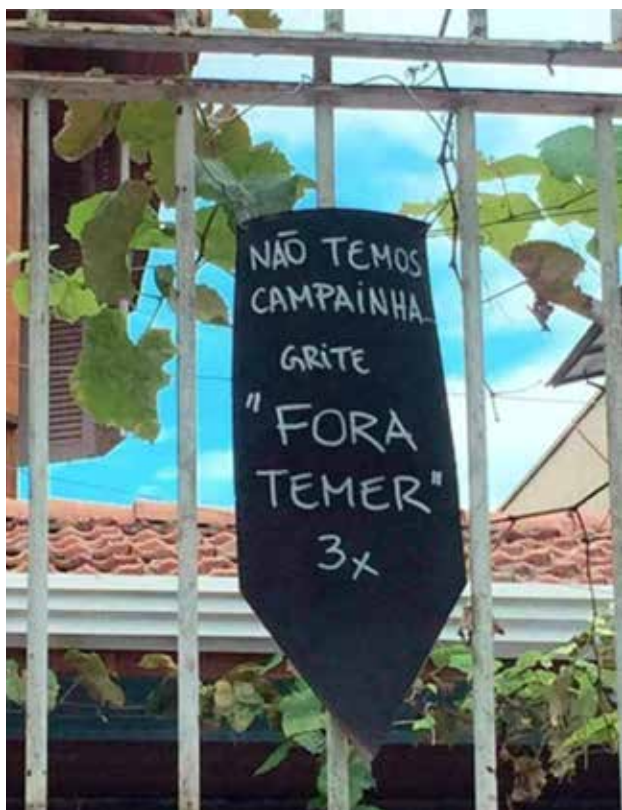 NÃO TEMOS
CAMPAINHA...
GRITE
"FORA
TEMER"
3x